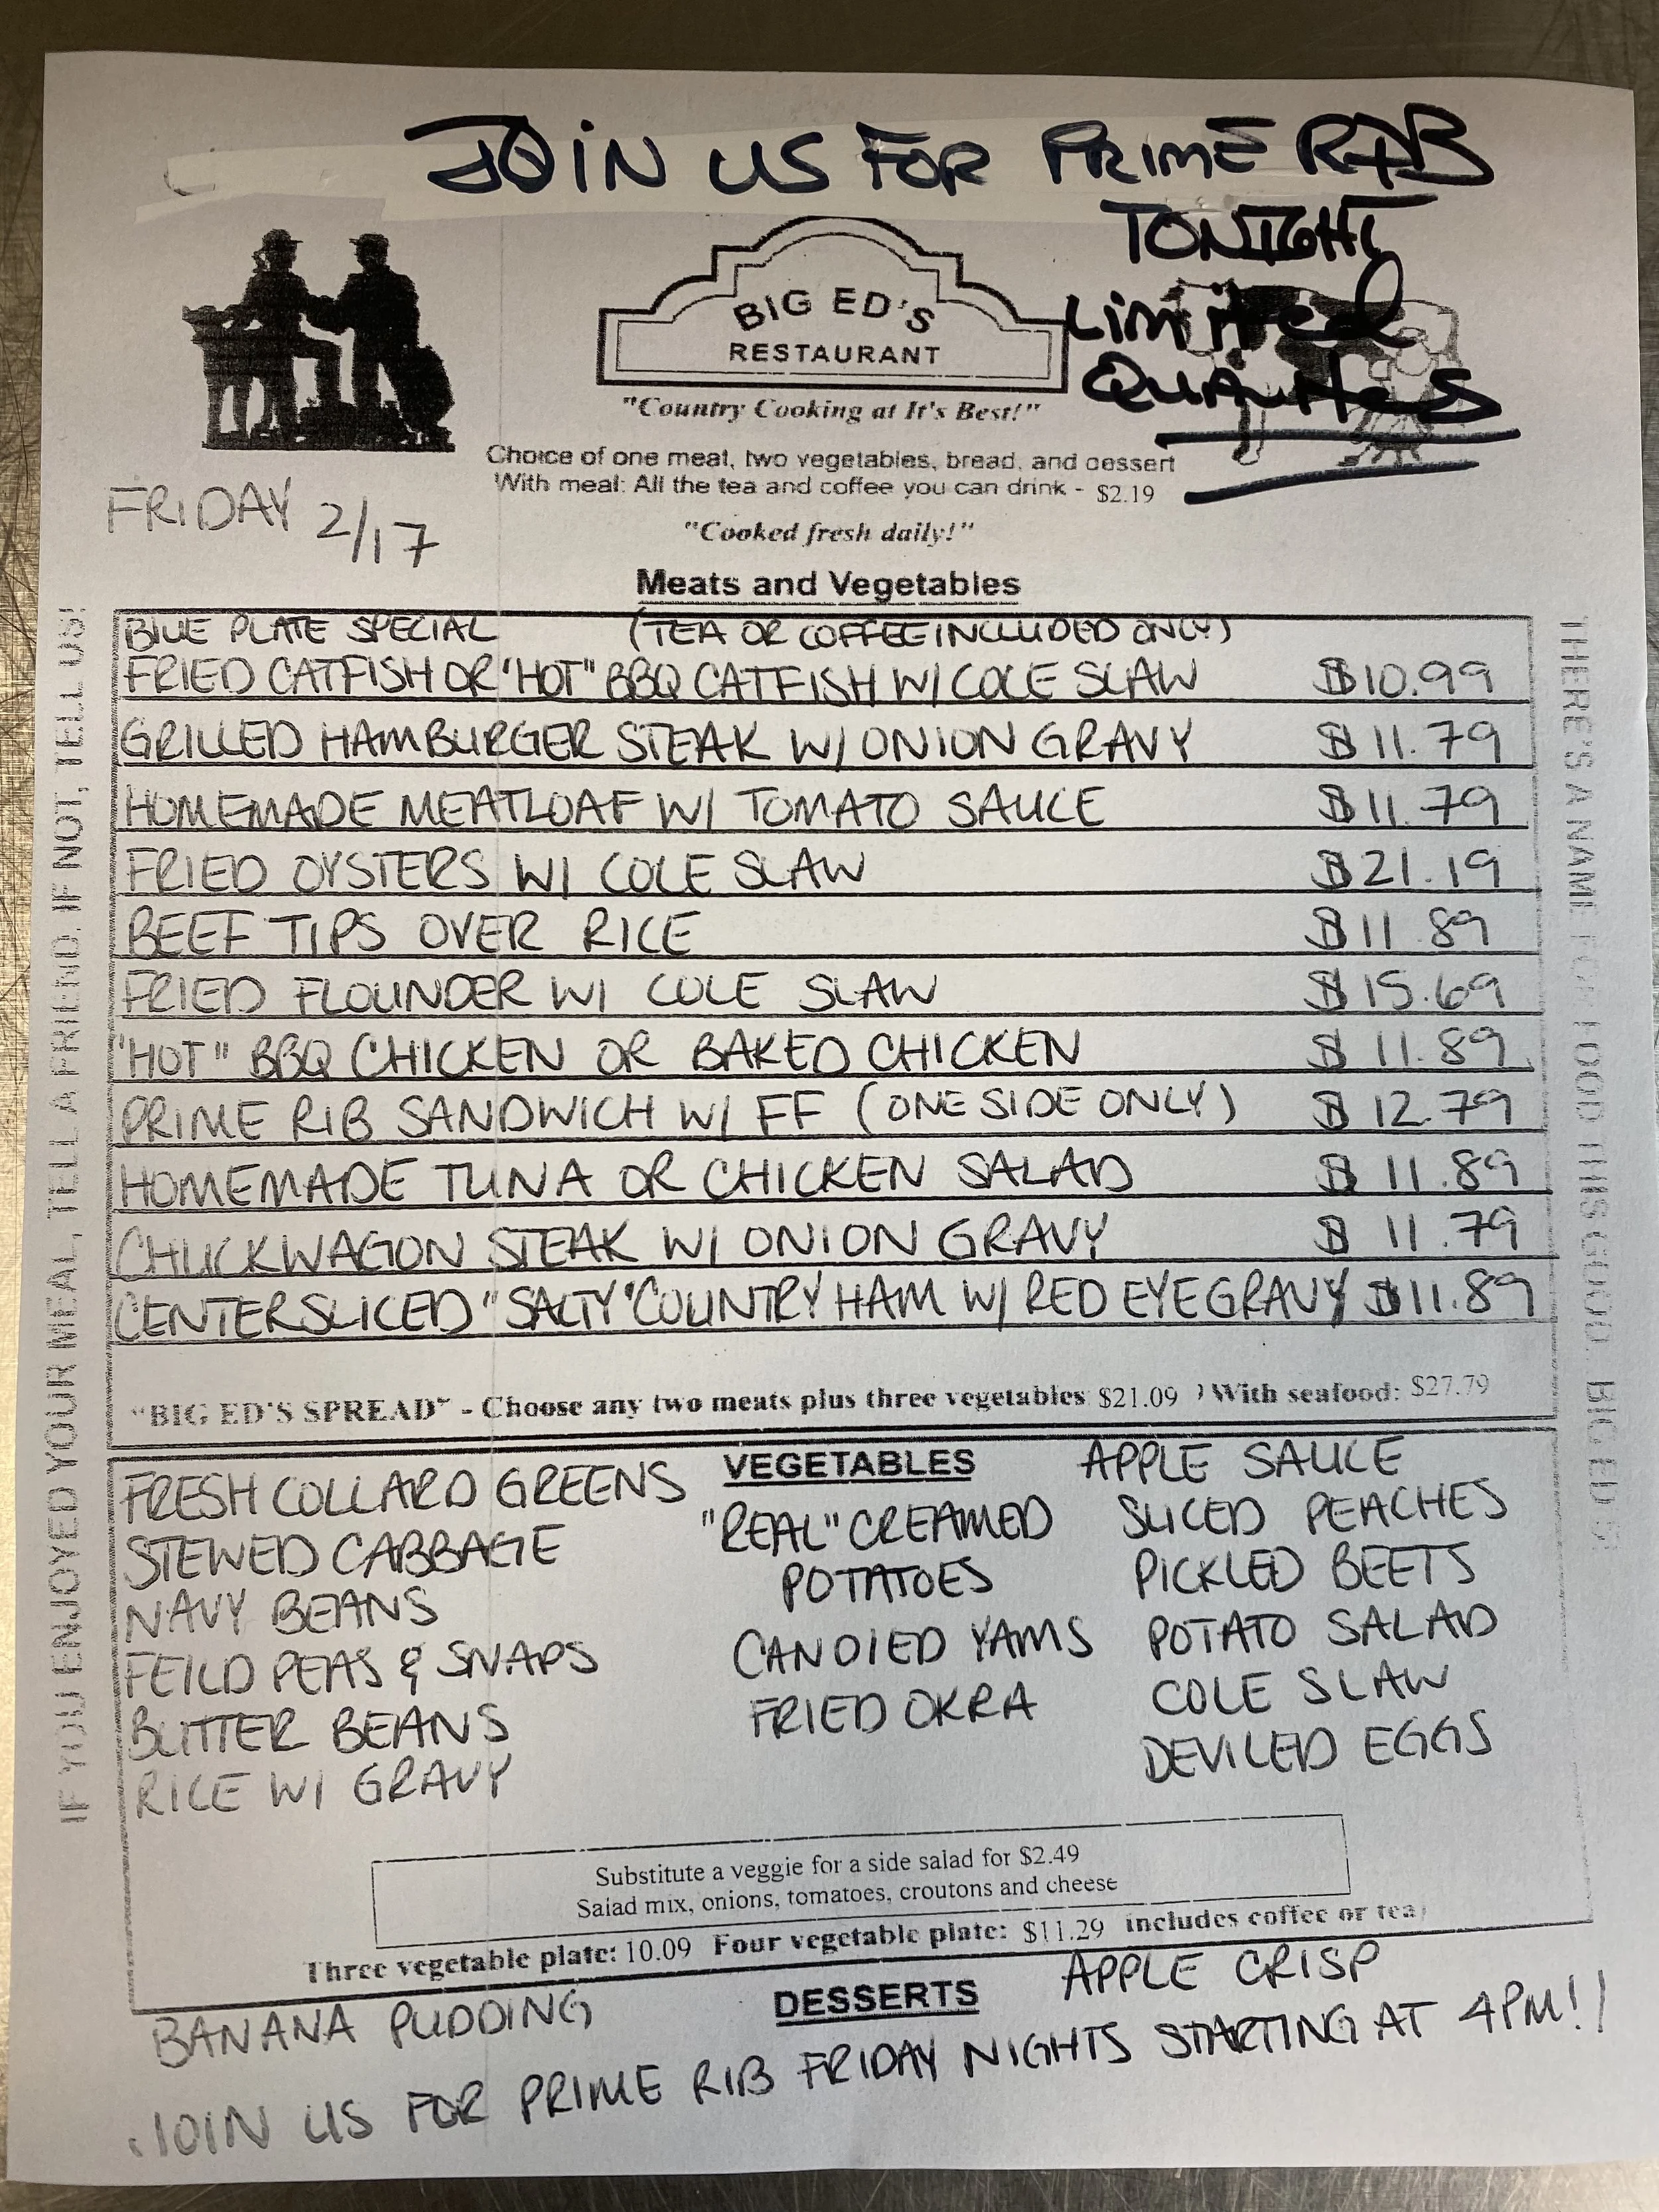 JOIN US FOR PRIME RIB
TONIGHT
Limited
Quantities
BIG ED'S
RESTAURANT
"Country Cooking at It's Best!"
Choice of one meat, two vegetables, bread, and dessert
With meal: All the tea and coffee you can drink - $2.19
FRIDAY 2/17
"Cooked fresh daily!"
Meats and Vegetables
BLUE PLATE SPECIAL (TEA OR COFFEE INCLUDED ONLY)
FRIED CATFISH OR "HOT" BBQ CATFISH W/ COLE SLAW $10.99
GRILLED HAMBURGER STEAK W/ ONION GRAVY $11.79
HOMEMADE MEATLOAF W/ TOMATO SAUCE $11.79
FRIED OYSTERS W/ COLE SLAW $21.19
BEEF TIPS OVER RICE $11.89
FRIED FLOUNDER W/ COLE SLAW $15.69
"HOT" BBQ CHICKEN OR BAKED CHICKEN $11.89
PRIME RIB SANDWICH W/ FF (ONE SIDE ONLY) $12.79
HOMEMADE TUNA OR CHICKEN SALAD $11.89
CHUCKWAGON STEAK W/ ONION GRAVY $11.79
CENTER SLICED "SALTY" COUNTRY HAM W/ RED EYE GRAVY $11.89
"BIG ED'S SPREAD" - Choose any two meats plus three vegetables $21.09 ) With seafood: $27.79
IF YOU ENJOYED YOUR MEAL, TELL A FRIEND. IF NOT, TELL US!
THERE'S A NAME FOR FOOD THIS GOOD... BIG ED'S
VEGETABLES
FRESH COLLARD GREENS
STEWED CABBAGE
NAVY BEANS
FEILD PEAS & SNAPS
BUTTER BEANS
RICE W/ GRAVY
"REAL" CREAMED
POTATOES
CANDIED YAMS
FRIED OKRA
APPLE SAUCE
SLICED PEACHES
PICKLED BEETS
POTATO SALAD
COLE SLAW
DEVILED EGGS
Substitute a veggie for a side salad for $2.49
Salad mix, onions, tomatoes, croutons and cheese
Three vegetable plate: 10.09 Four vegetable plate: $11.29 includes coffee or tea
DESSERTS
BANANA PUDDING
APPLE CRISP
JOIN US FOR PRIME RIB FRIDAY NIGHTS STARTING AT 4PM!!